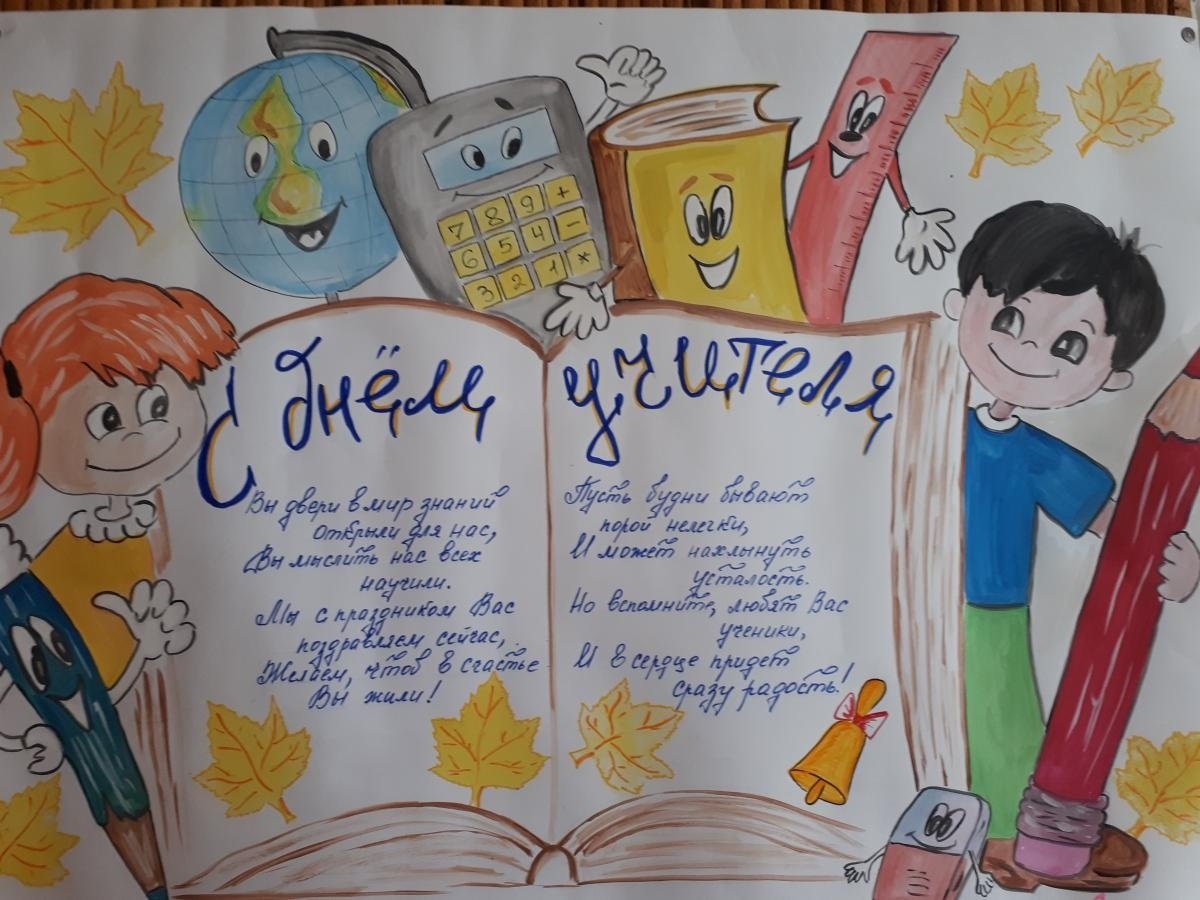 С днём учителя
7 8 9 +
6 5 4 -
3 2 1 *
Вы двери в мир знаний
открыли для нас,
Вы мыслить нас всех
научили.
Мы с праздником Вас
поздравляем сейчас,
Желаем, чтоб в счастье
Вы жили!
Пусть будни бывают
порой нелегки,
И может нахлынуть
усталость.
Но вспомните, любят Вас
ученики,
И в сердце придет
сразу радость!